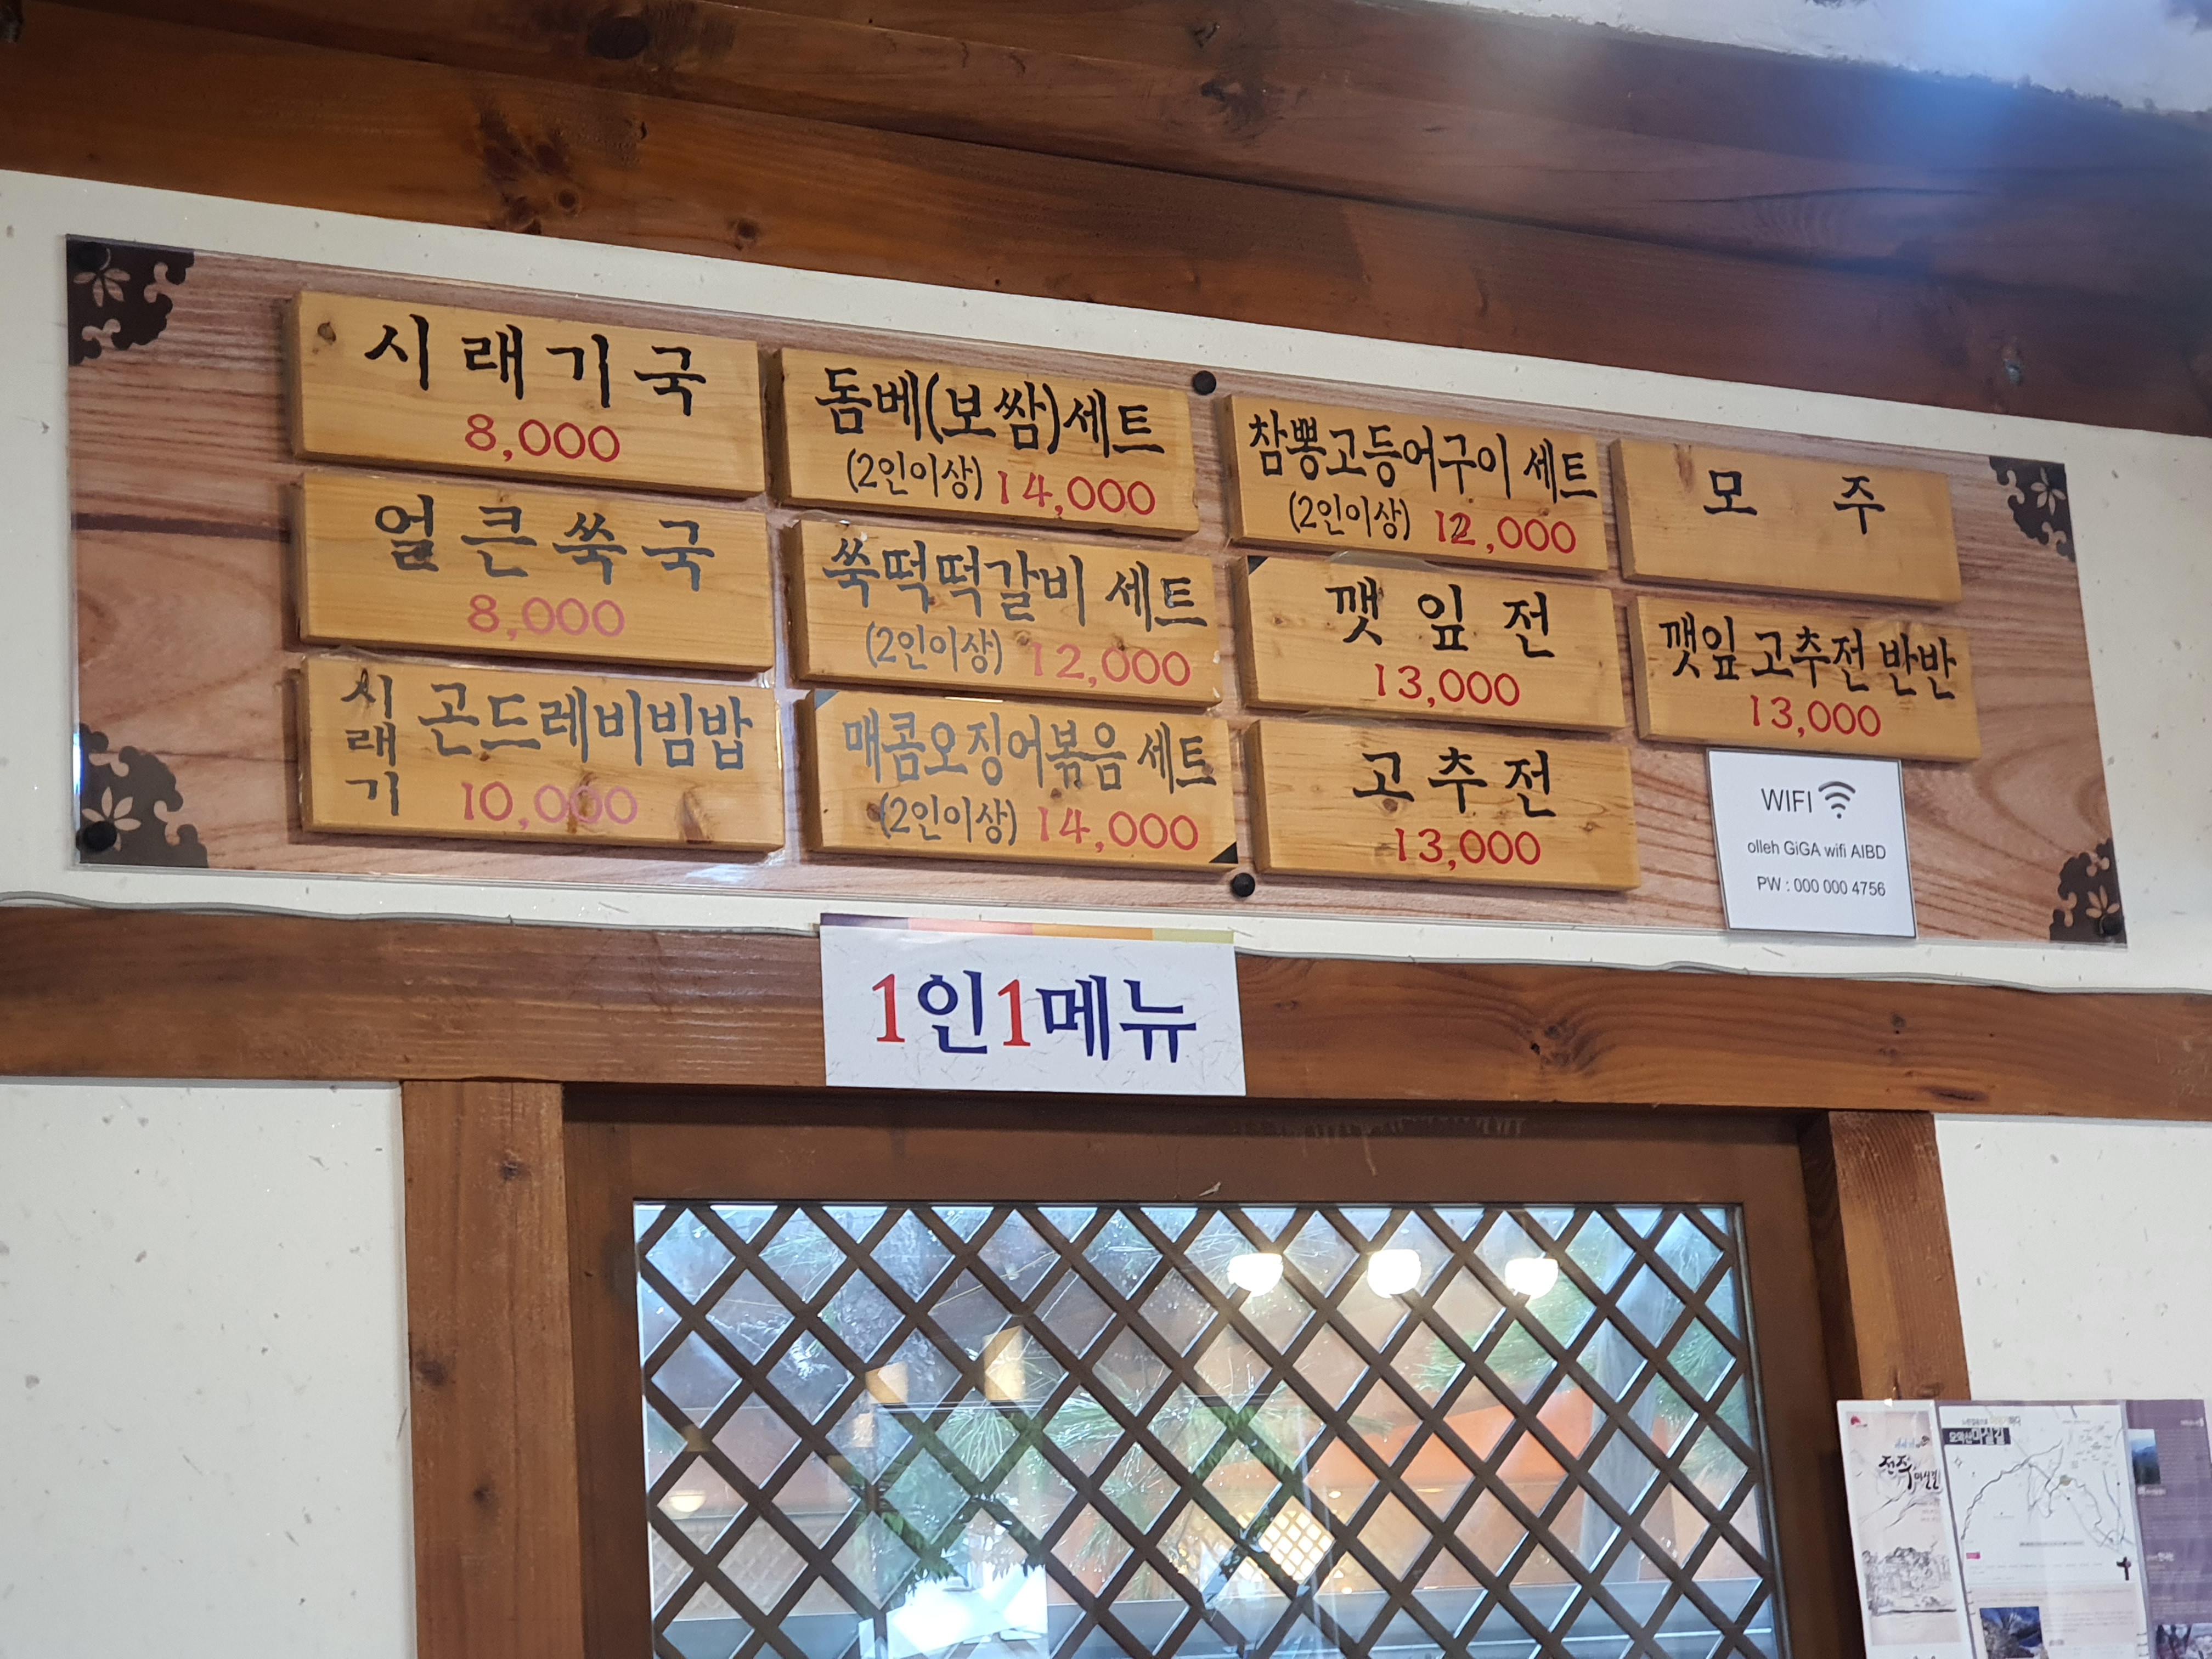 시래기국
8,000
얼큰쑥국
8,000
시래기 곤드레비빔밥
10,000
돔베(보쌈)세트
(2인이상) 14,000
쑥떡떡갈비 세트
(2인이상) 12,000
매콤오징어볶음 세트
(2인이상) 14,000
참뽕고등어구이 세트
(2인이상) 12,000
깻잎전
13,000
고추전
13,000
모주
깻잎고추전 반반
13,000
WIFI
olleh GiGA wifi AIBD
PW : 000 000 4756
1인1메뉴
전주
마실길
모악산마실길